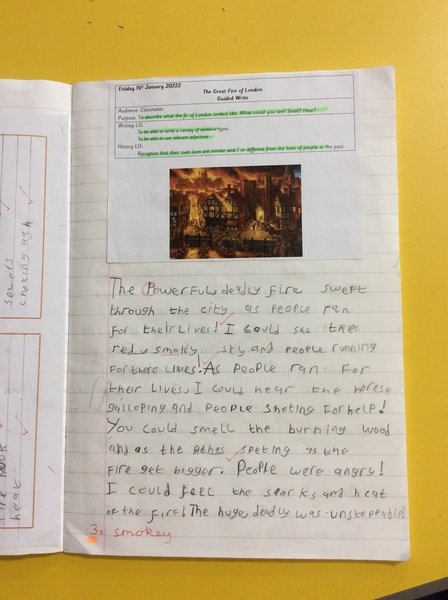 sewers
choking ash
heat
Friday 14th January 20222
The Great Fire of London
Guided Write
Audience: Classmates
Purpose: To describe what the fir of London looked like. What could you see? Smell? Hear?
Writing LO:
- To be able to write a variety of sentence types.
- To be able to use relevant adjectives.
History LO:
- Recognise that their own lives are similar and / or different from the lives of people in the past.
The Powerful, deadly fire swept
through the city as people ran
for their lives! I could see the
red, smoky sky and people running
for there lives! As people ran for
their lives, I could hear the horese
galloping and people shoting for help!
You could smell the burning wood
and as the ashes speting as the
fire get bigger. People were angry!
I could feel the sparks and heat
of the fire! The huge, deadly was unstoppable
3x smokey